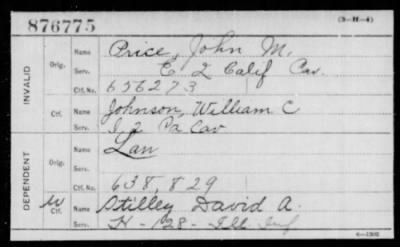 876775
(3-H-4)
INVALID
Orig.
Name Price, John M.
Serv. E 2 Calif Cav.
Ctf. No. 656273
Ctf.
Name Johnson, William C
Serv. I 2 Pa Cav
DEPENDENT
Orig.
Name Lan
Serv.
Ctf. No. 638,829
W Ctf.
Name Stilley David A.
Serv. H - 128 - Ill Inf